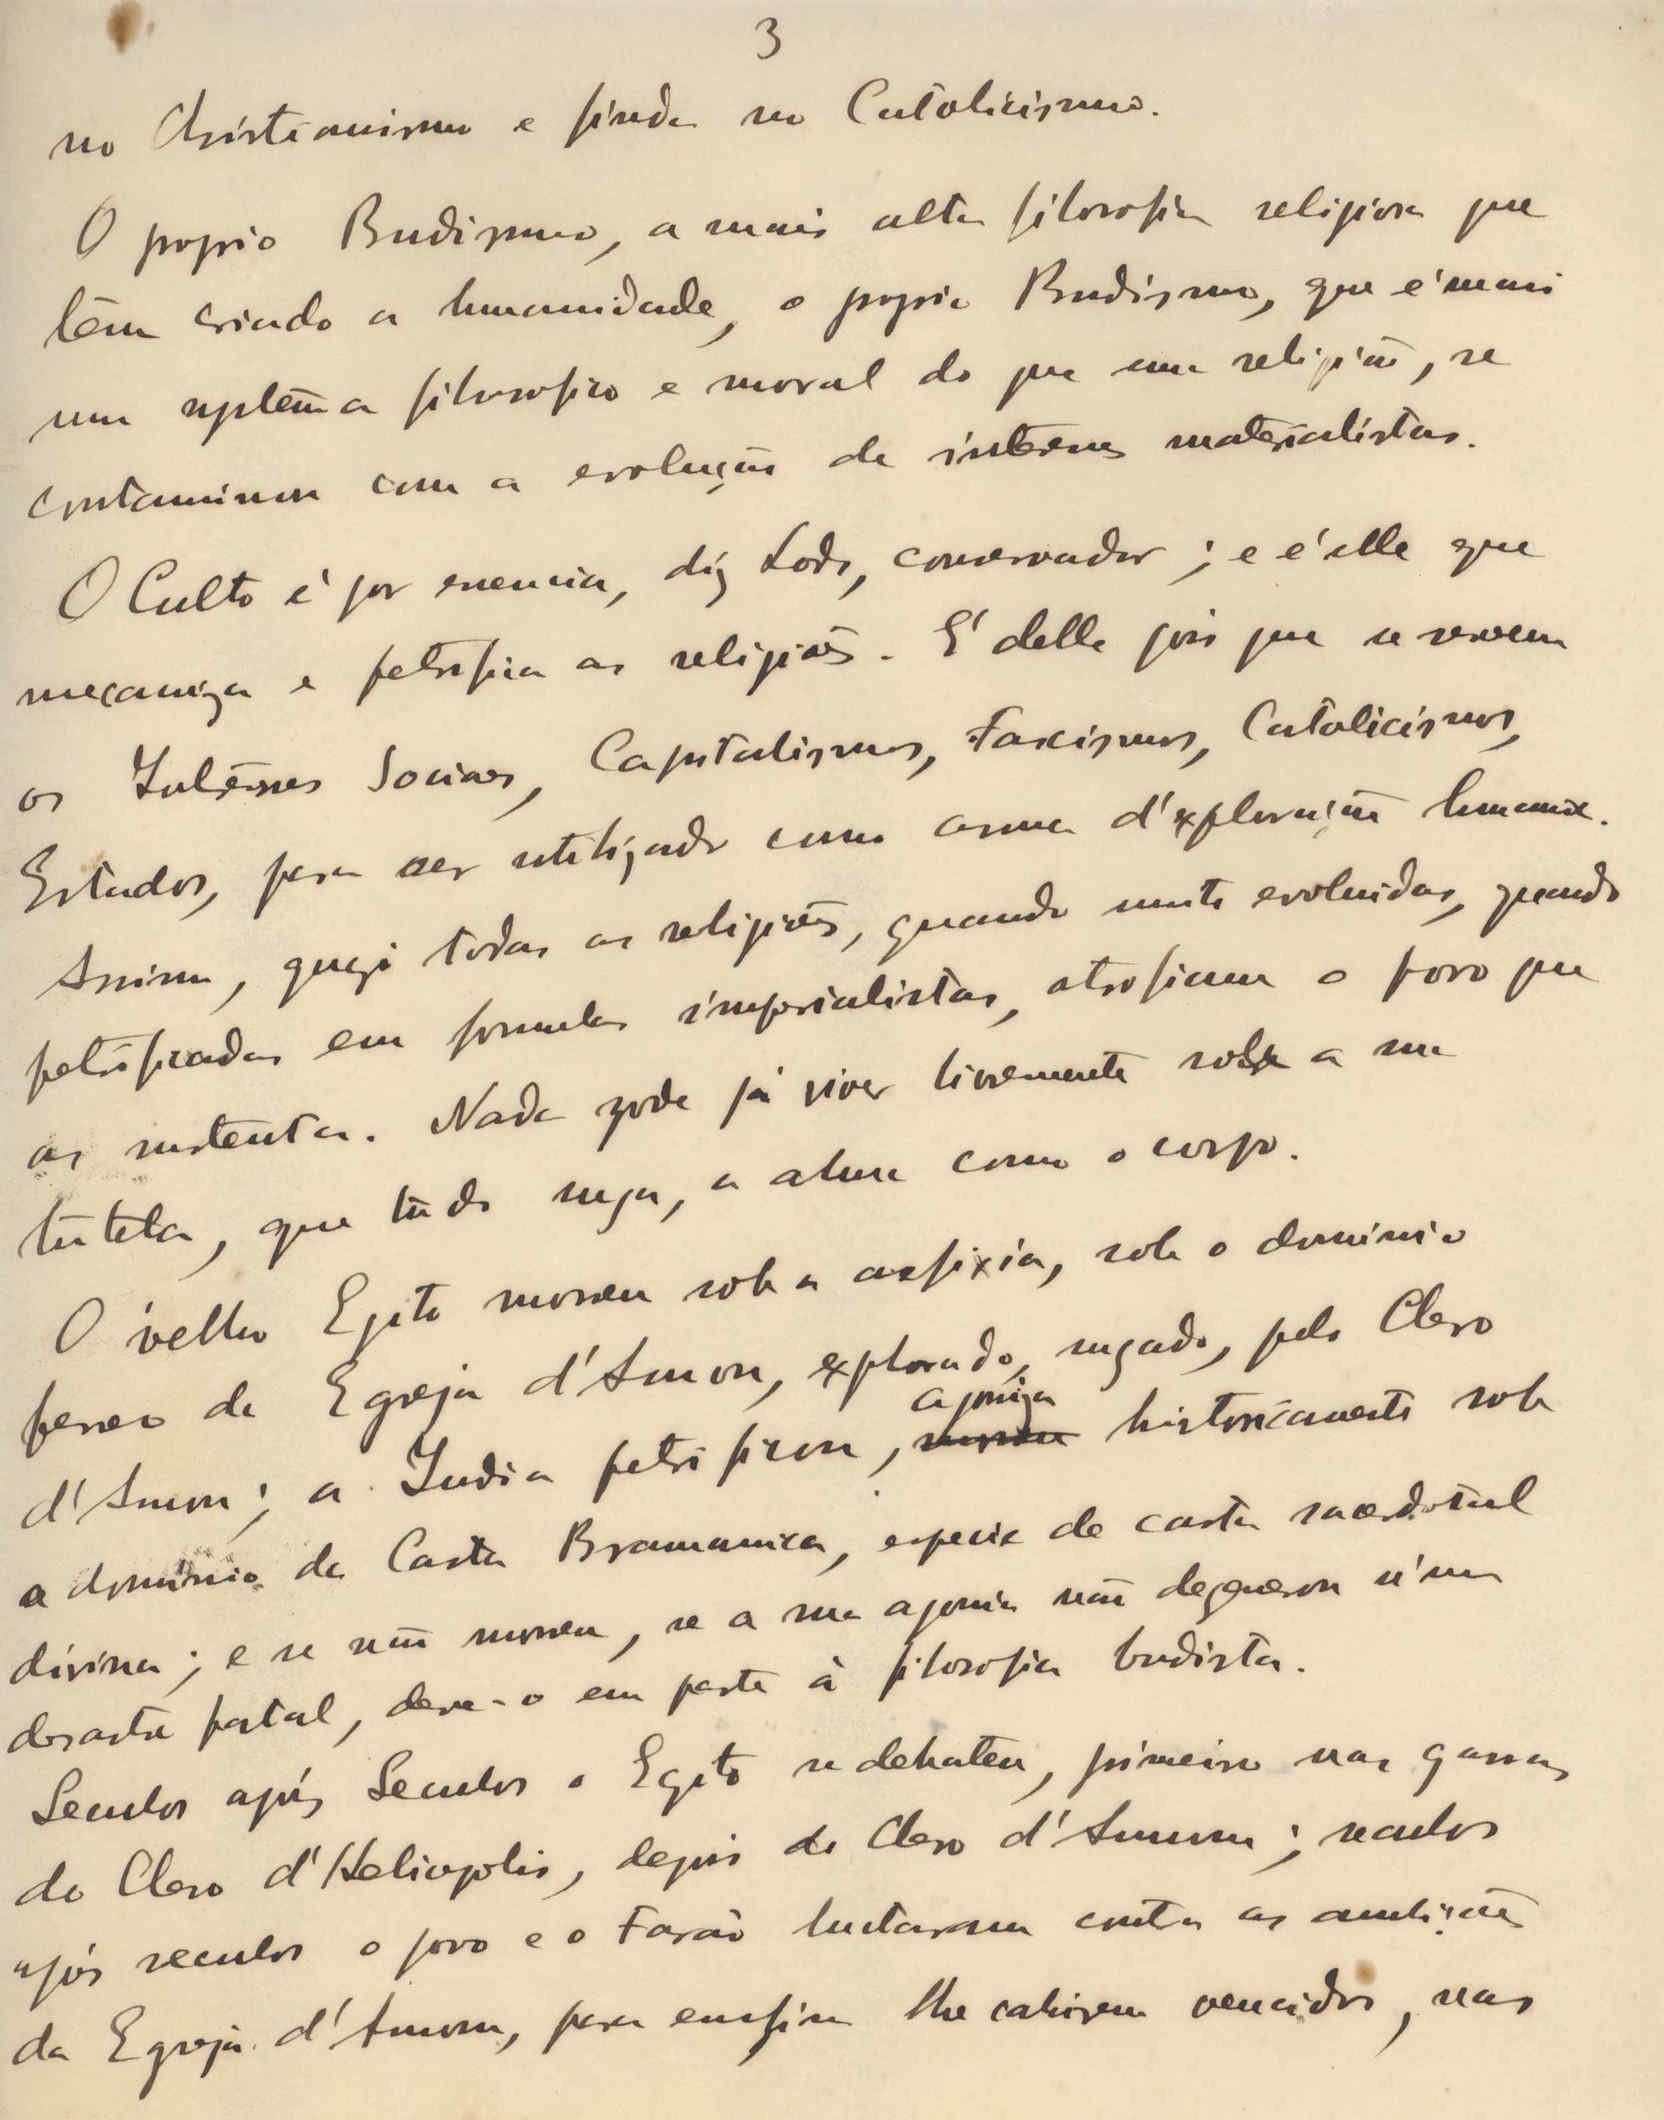 3
no Christianismo e finda no Catolicismo.
O proprio Budismo, a mais alta filosofia religiosa que
têm criado a humanidade, o proprio Budismo, que é mais
um systema filosofico e moral do que uma religião, se
contaminou com a evolução de interesses materialistas.
O Culto é por essencia, diz Lods, conservador; e é elle que
mecaniza e petrifica as religiões. É delle pois que se servem
os Interesses Sociaes, Capitalismos, Faxcismos, Catolicismos,
Estados, para ser utilizado como arma d'exploração humana.
Assim, quazi todas as religiões, quando muito evoluidas, quando
petrificadas em formulas imperialistas, atrofiam o povo que
as sustenta. Nada pode já viver livremente sobe a sua
tutela, que tudo suga, a alma como o corpo.
O velho Egito morreu sob a asfixia, sob o dominio
ferreo da Egreja d'Amon, explorado, sugado, pelo Clero
d'Amon; a India petrificou, agoniza historicamente sob
o dominio da Casta Bramanica, especie de casta sacerdotal
divina; e se não morreu, se a sua agonia não degenerou n'um
desastre fatal, deve-o em parte à filosofia budista.
Seculos após Seculos o Egito se debateu, primeiro nas garras
do Clero d'Heliopolis, depois do Clero d'Ammon; seculos
após seculos o povo e o Farão lutaram contra as ambições
da Egreja d'Amom, para emfim lhe cahirem vencidos, nas